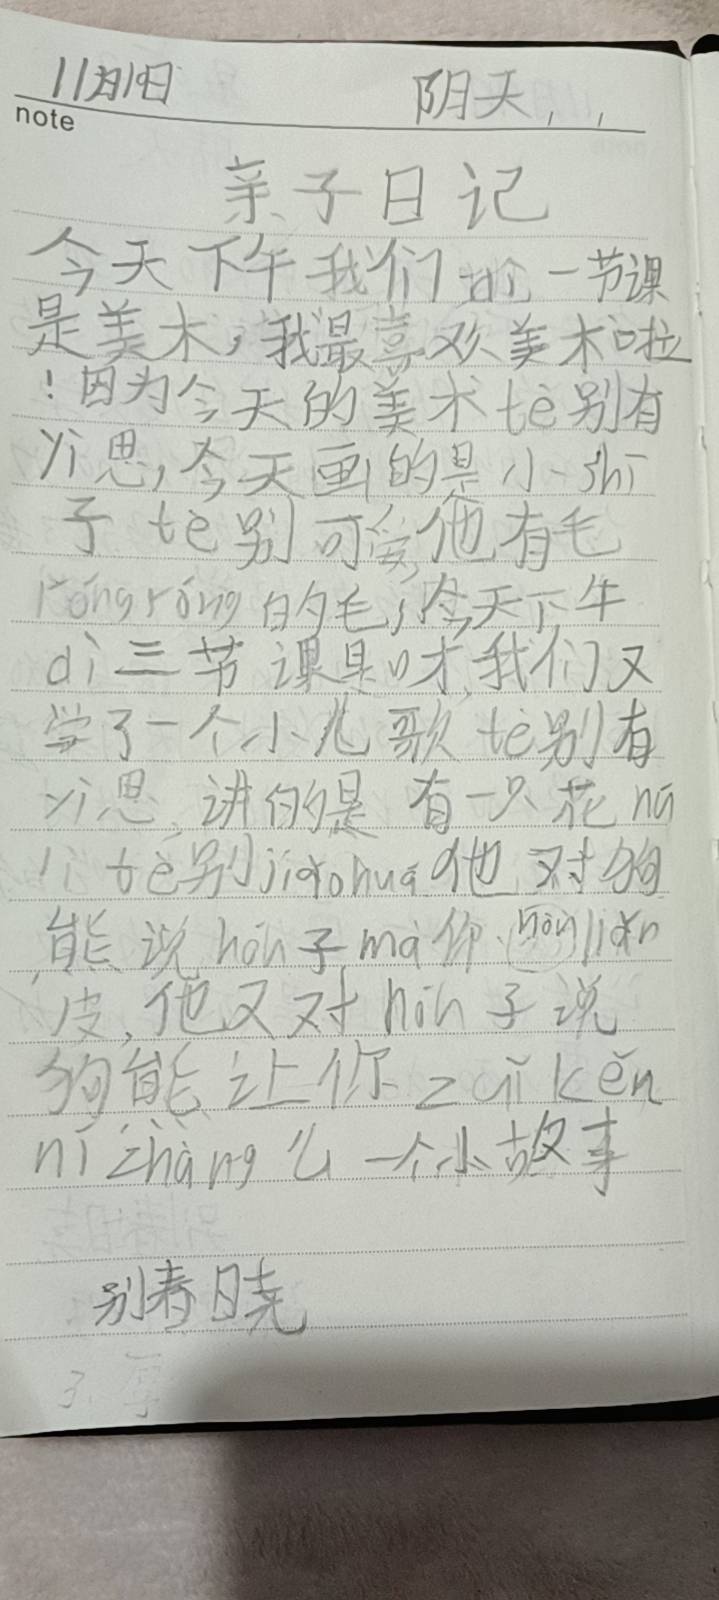 11月19日 阴天
note
亲子日记
今天下午我们 一节课
是美术，我最喜欢美术啦
！因为今天的美术tè别有
yì思，今天画的是小shī
子tè别可爱，他有毛
róngróng的毛，今天下午
dì三节课是 我们又
学了一个小儿歌tè别有
yì思，讲的是有一只花
tè别jiǎohuá他对狗
能说hóu子mà你 liǎn
皮，他又对hóu子说
狗能让你zuǐkěn
nīzhàng么一个小故事
别春晓